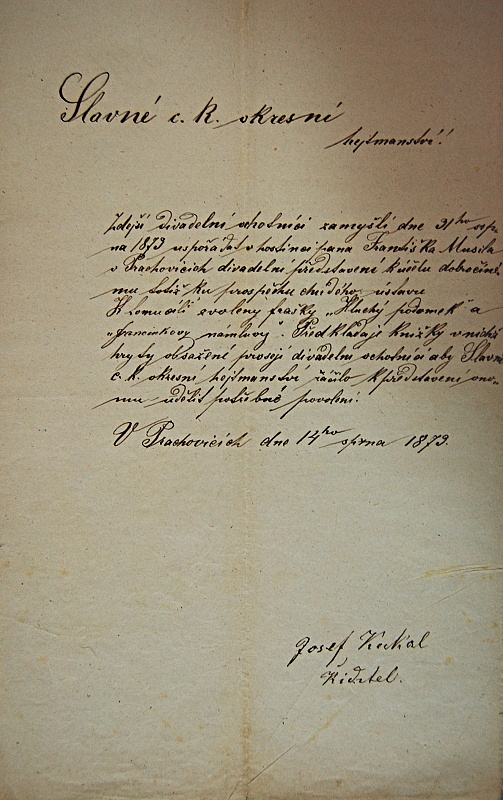 Slavné c. k. okresní
hejtmanství!
Zdejší divadelní ochotníci zamýšlí dne 31ho srp
na 1873 uspořádat v hostinci pana Františka Musila
v Prachovicích divadelní představení k účelu dobročinné
mu totiž ku prospěchu chudého ústavu
K tomu cíli zvoleny frašky „Hluchý podomek" a
„Francínkovy námluvy". Předkladaje knížky v nichž
hry ty obsažené prosejí divadelní ochotníci aby Slavné
c. k. okresní hejtmanství ráčilo k představení ono
mu udělit potřebné povolení.
V Prachovicích dne 14ho srpna 1873.
Josef
Ředitel.